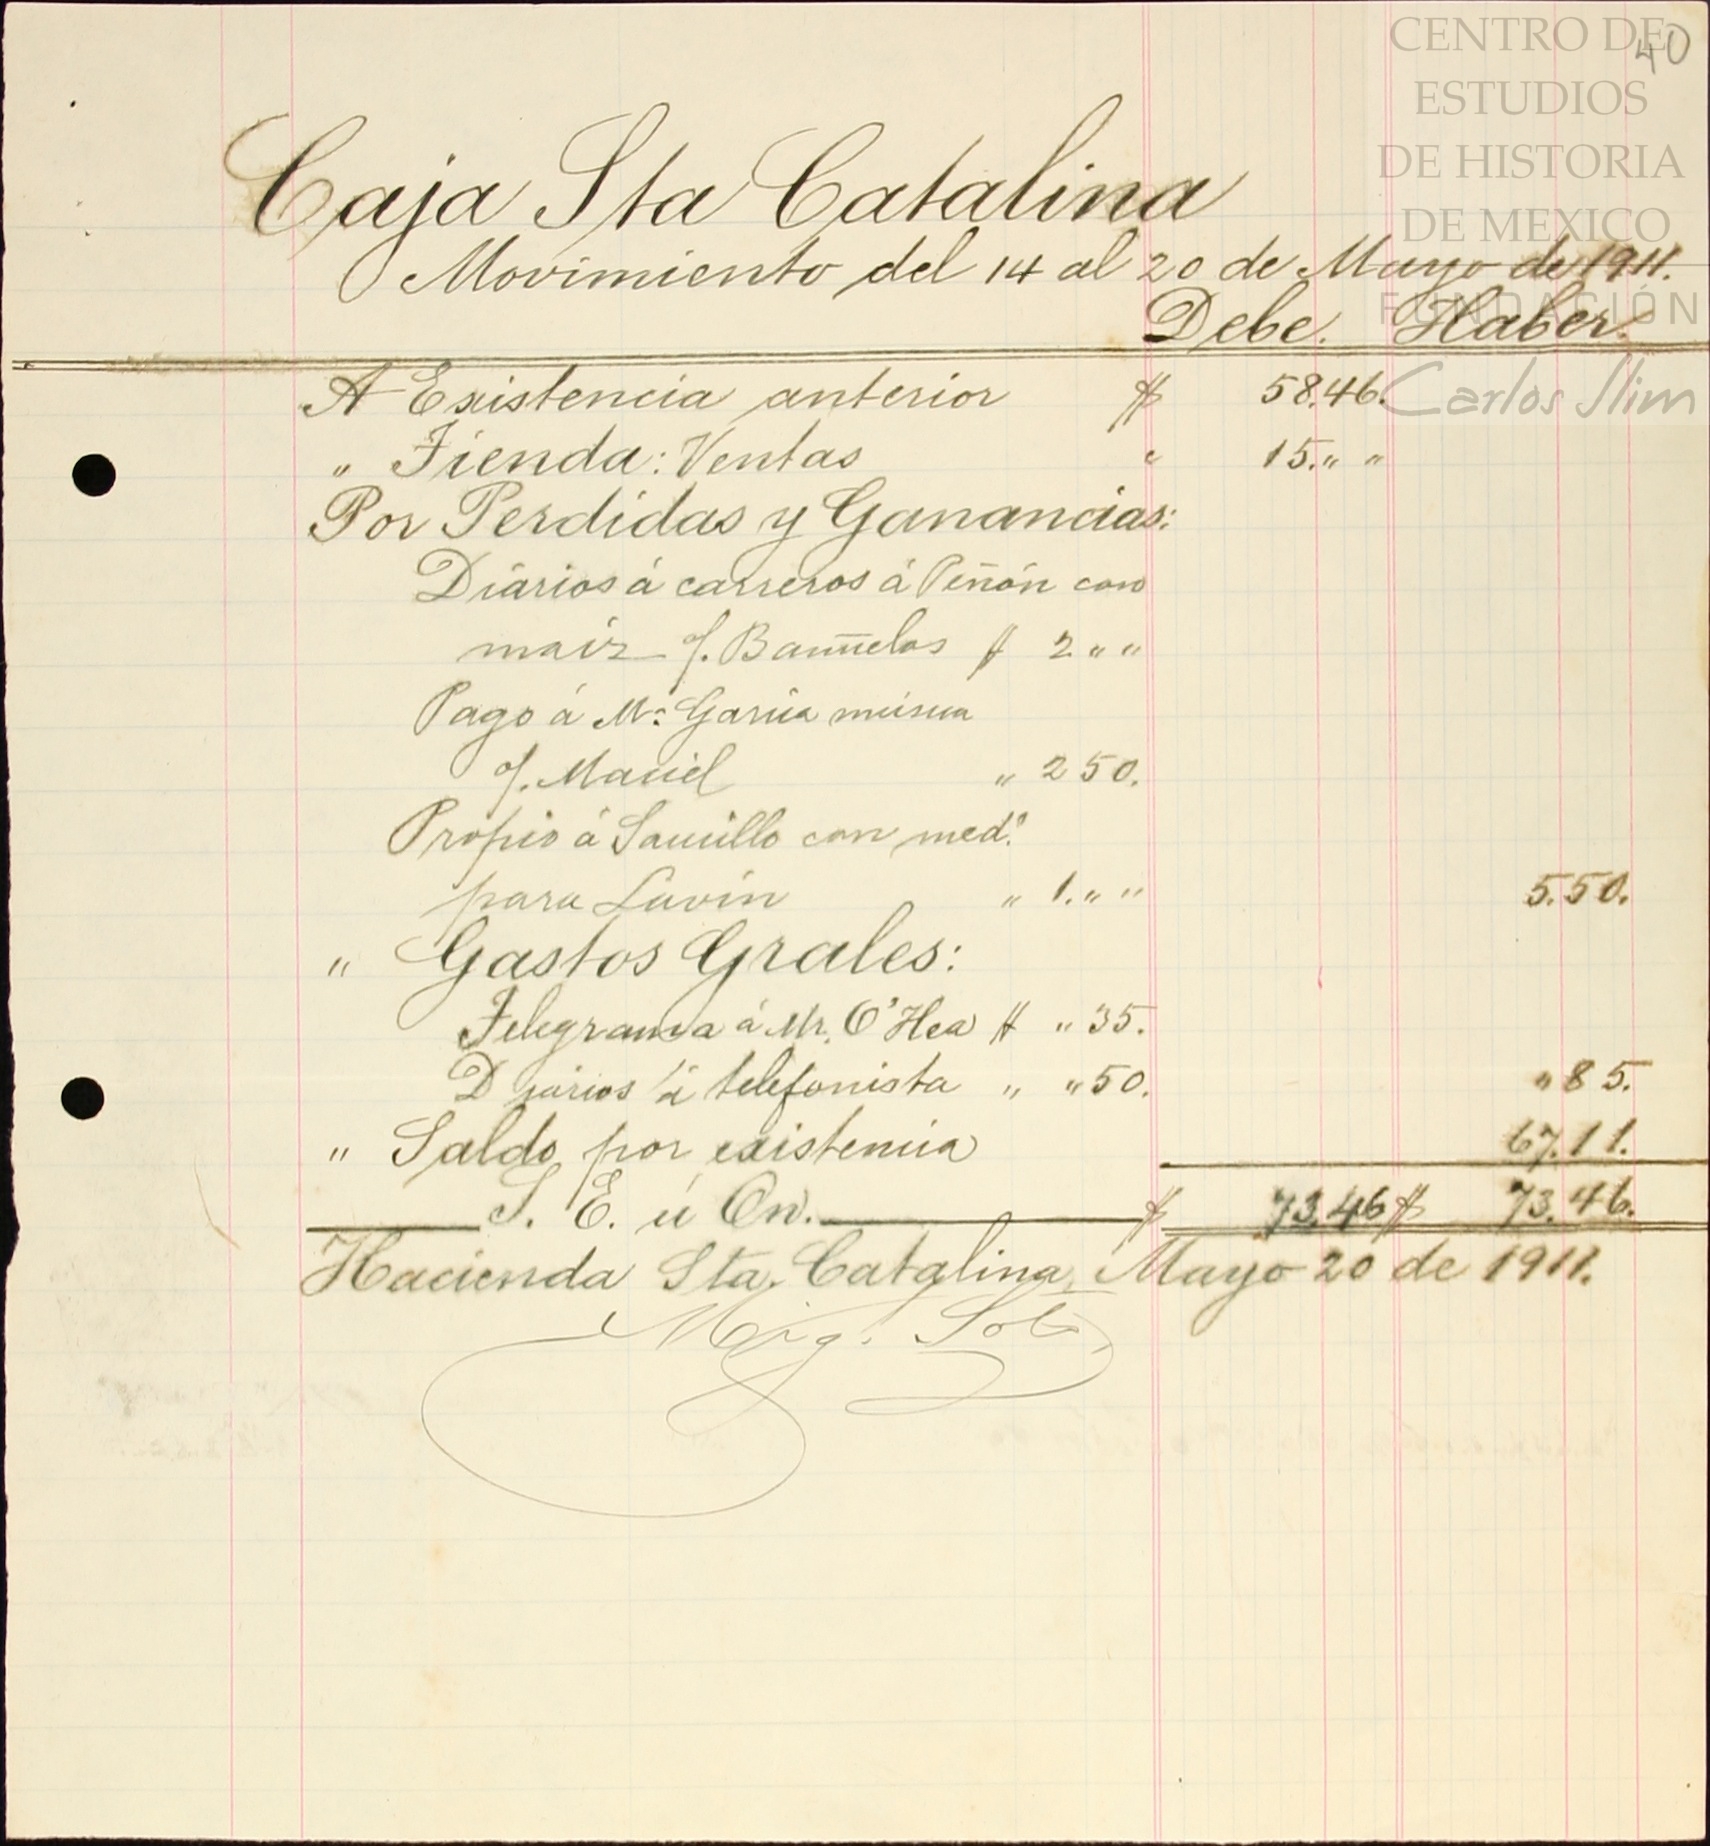 40
CENTRO DE
ESTUDIOS
DE HISTORIA
DE MEXICO
FUNDACIÓN
Carlos Slim
Caja Sta Catalina
Movimiento del 14 al 20 de Mayo de 1911.
Debe. Haber.
A Existencia anterior $ 58.46.
" Tienda: Ventas " 15." "
Por Perdidas y Ganancias:
Diarios á carreros á Peñón con
maiz f. Bañuelos $ 2 " "
Pago á Ma. Garcia música
f. Maciel " 2 50.
Propio á Saucillo con med.
para Lavín " 1. " " 5.50.
" Gastos Grales:
Telegrama á Mr. O'Hea $ " 35.
Diarios á telefonista " " 50. " 85.
" Saldo por existencia 67.11.
S. E. ú On. $ 73.46 $ 73.46.
Hacienda Sta. Catalina, Mayo 20 de 1911.
Mig. Soto